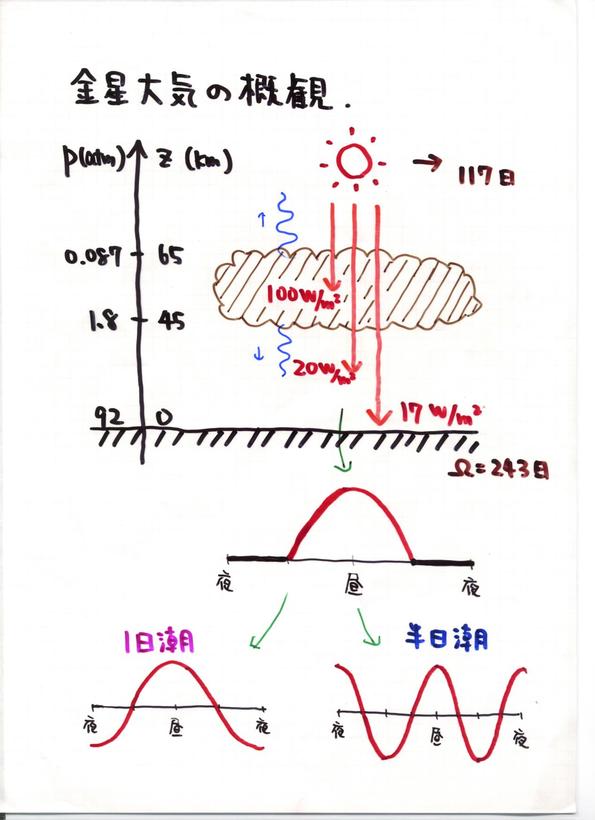 金星大気の概観.
P(atm) z (km)
→ 117日
↑
0.087 65
100W/m²
1.8 45
↓
20W/m²
92 0
17 W/m²
Ω=243日
夜 昼 夜
1日潮 半日潮
夜 昼 夜
夜 昼 夜